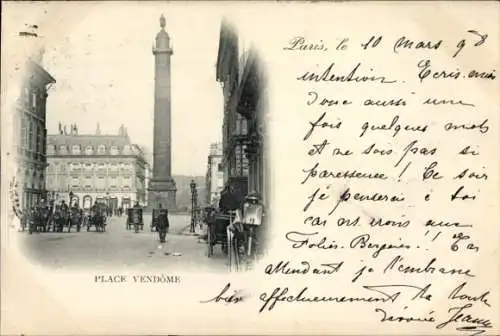 Paris, le 10 mars 98
intention. Écris-moi
Donc aussi une
fois quelques mots
et ne sois pas si
paresseuse! Ce soir
je penserai à toi
car n irons aux
Folies-Bergère!! En
attendant je t'embrasse
bien affectueusement Ta toute
dévouée Jeanne
PLACE VENDÔME